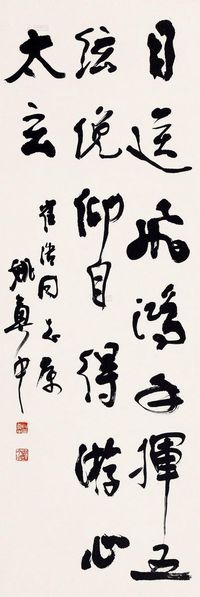 目送飛鴻手揮五
弦俛仰自得游心
太玄
崔浩同志属
姚奠中